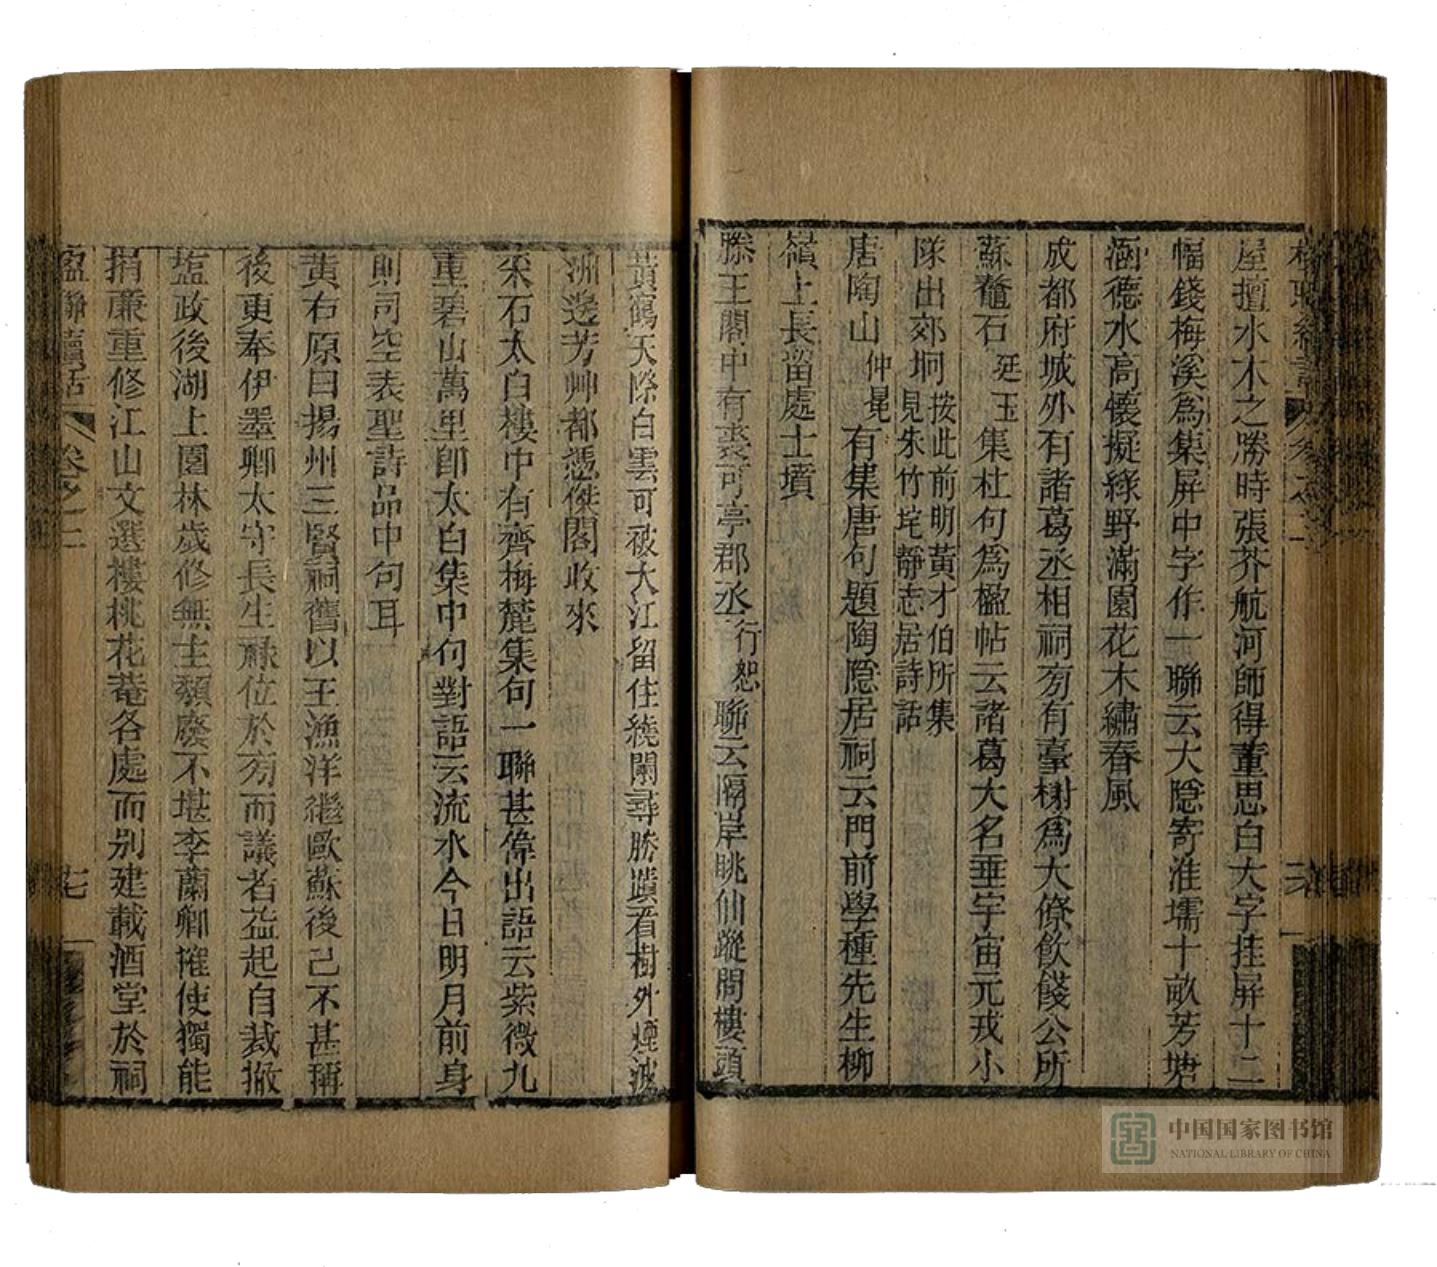 屋擅水木之勝時張芥航河師得董思白大字挂屏十二
幅錢梅溪為集屏中字作一聯云大隱寄淮壖十畝芳塘
涵德水高懷擬綠野滿園花木繡春風
成都府城外有諸葛丞相祠旁有臺榭為大僚飲餞公所
蘇鼇石廷玉集杜句為楹帖云諸葛大名垂宇宙元戎小
隊出郊坰按此前明黃才伯所集見朱竹垞靜志居詩話
唐陶山仲冕有集唐句題陶隱居祠云門前學種先生柳
嶺上長留處士墳
滕王閣中有裘可亭郡丞行恕聯云隔岸眺仙蹤問樓頭
黃鶴天際白雲可被大江留住繞闌尋勝蹟看樹外煙波
洲邊芳艸都憑傑閣收來
采石太白樓中有齊梅麓集句一聯甚偉出語云紫微九
重碧山萬里卽太白集中句對語云流水今日明月前身
則司空表聖詩品中句耳
黃右原曰揚州三賢祠舊以王漁洋繼歐蘇後己不甚稱
後更奉伊墨卿太守長生祿位於旁而議者益起自裁撤
塩政後湖上園林歲修無主頹廢不堪李蘭卿搉使獨能
捐廉重修江山文選樓桃花菴各處而別建載酒堂於祠
楹聯續話 卷之二 七
中国国家图书馆
NATIONAL LIBRARY OF CHINA